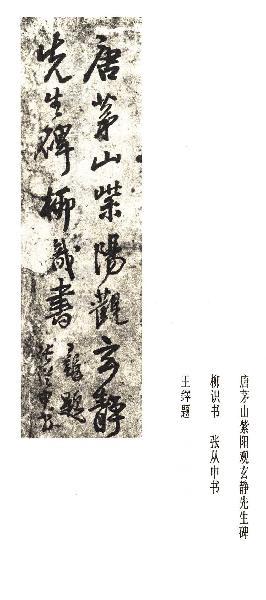 唐茅山紫陽觀玄靜
先生碑柳識書
張從申書
題
唐茅山紫阳观玄静先生碑
柳识书 张从申书
王铎题